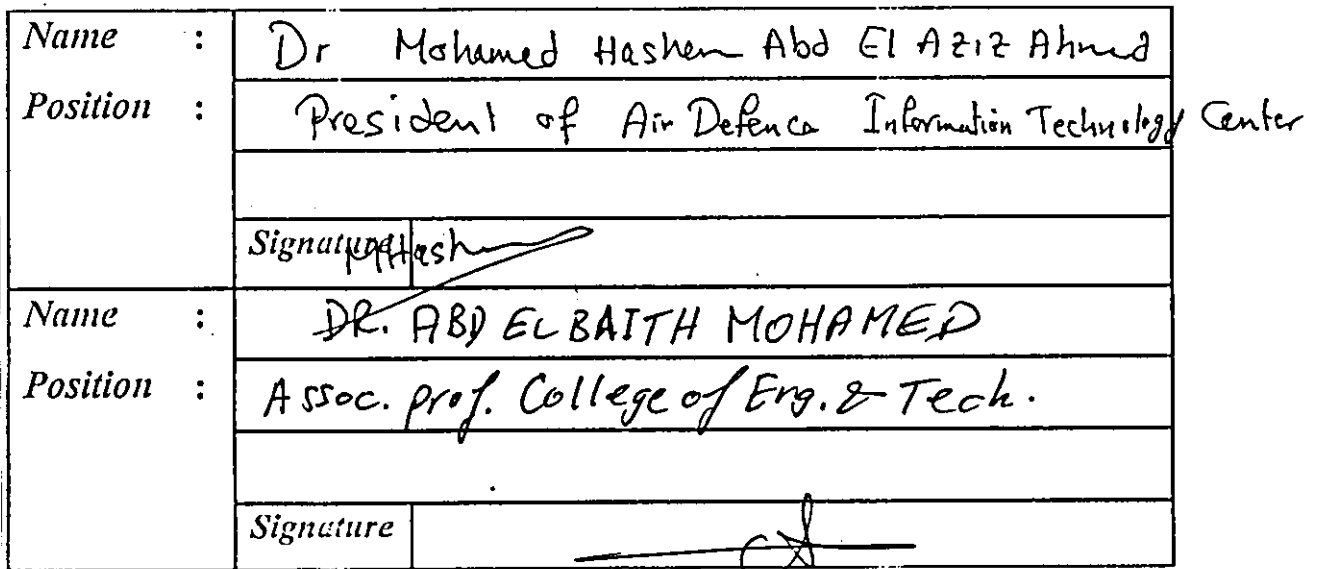 Name : Dr Mohamed Hashem Abd El Aziz Ahmed
Position : President of Air Defence Information Technology Center
Signature MHashem
Name : DR. ABD ELBAITH MOHAMED
Position : Assoc. prof. College of Eng. & Tech.
Signature